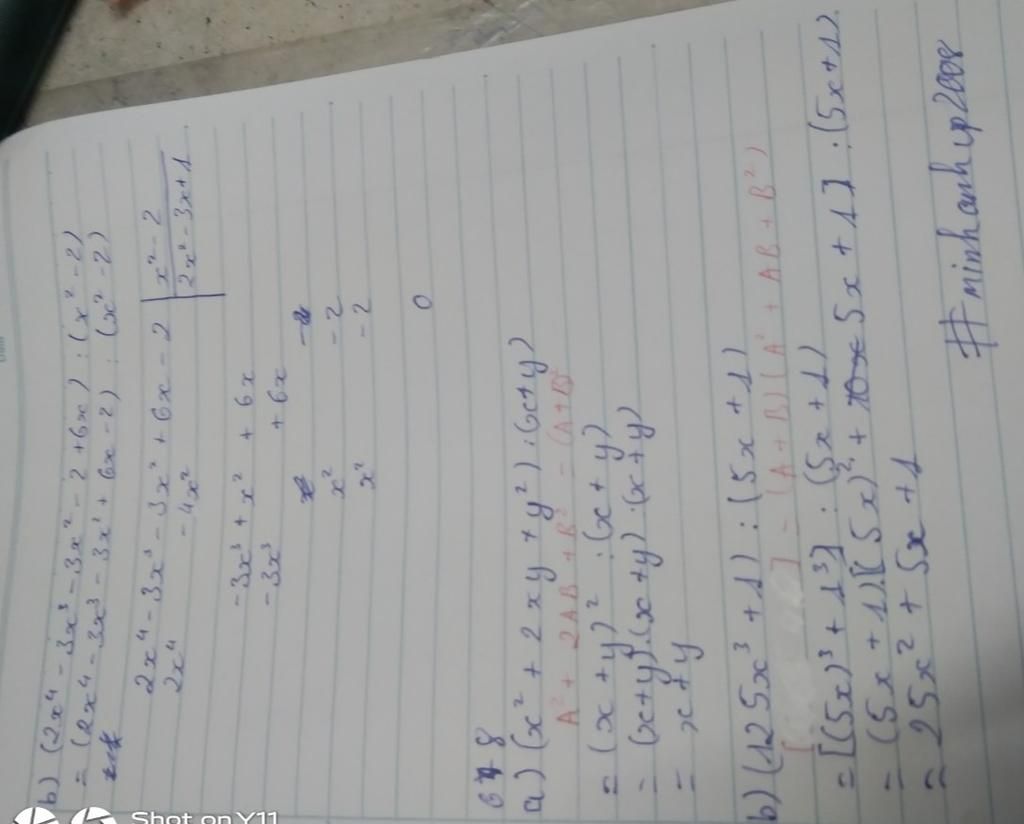 b) (2x⁴ - 3x³ - 3x² - 2 + 6x) : (x² - 2)
= (2x⁴ - 3x³ - 3x² + 6x - 2) : (x² - 2)
2x⁴ - 3x³ - 3x² + 6x - 2 | x² - 2
2x⁴ - 4x² | 2x² - 3x + 1
- 3x³ + x² + 6x
- 3x³ + 6x
x² - 2
x² - 2
0
68
a) (x² + 2xy + y²) : (x + y)
A² + 2AB + B² = (A+B)²
= (x + y)² : (x + y)
= (x+y).(x+y) : (x+y)
= x + y
b) (125x³ + 1) : (5x + 1)
= (A + B)(A² + AB + B²)
= [(5x)³ + 1³] : (5x + 1)
= (5x + 1)[(5x)² + 5x + 1] : (5x+1)
= 25x² + 5x + 1
#minhanhvp2008
Shot on Y11